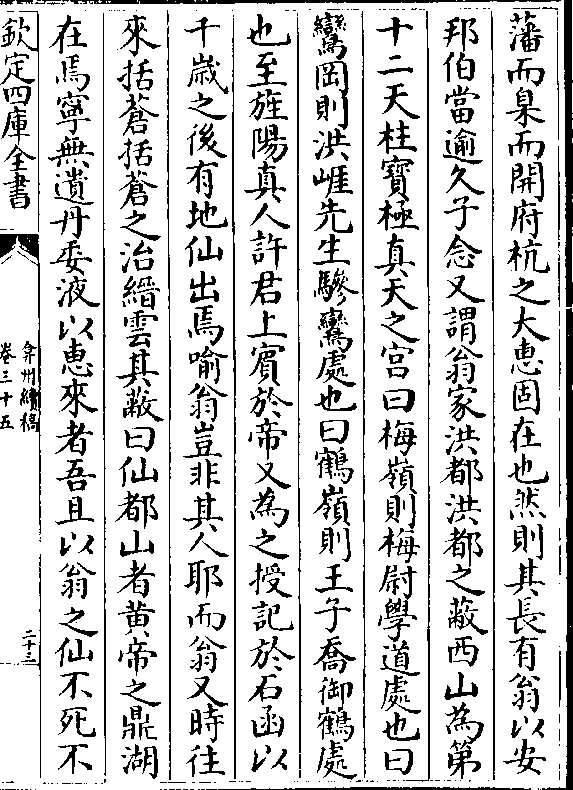 藩而臬而開府杭之大惠固在也然則其長有翁以安
邦伯當逾久子念又謂翁家洪都洪都之蔽西山為第
十二天柱寶極真天之宮曰梅嶺則梅尉學道處也曰
鸞岡則洪崖先生驂鸞處也曰鶴嶺則王子喬御鶴處
也至旌陽真人許君上賓於帝又為之授記於石函以
千歲之後有地仙出焉喻翁豈非其人耶而翁又時往
來括蒼括蒼之治縉雲其蔽曰仙都山者黃帝之鼎湖
在焉寧無遺丹委液以惠來者吾且以翁之仙不死不
欽定四庫全書
弇州續稿
卷三十五
二十三